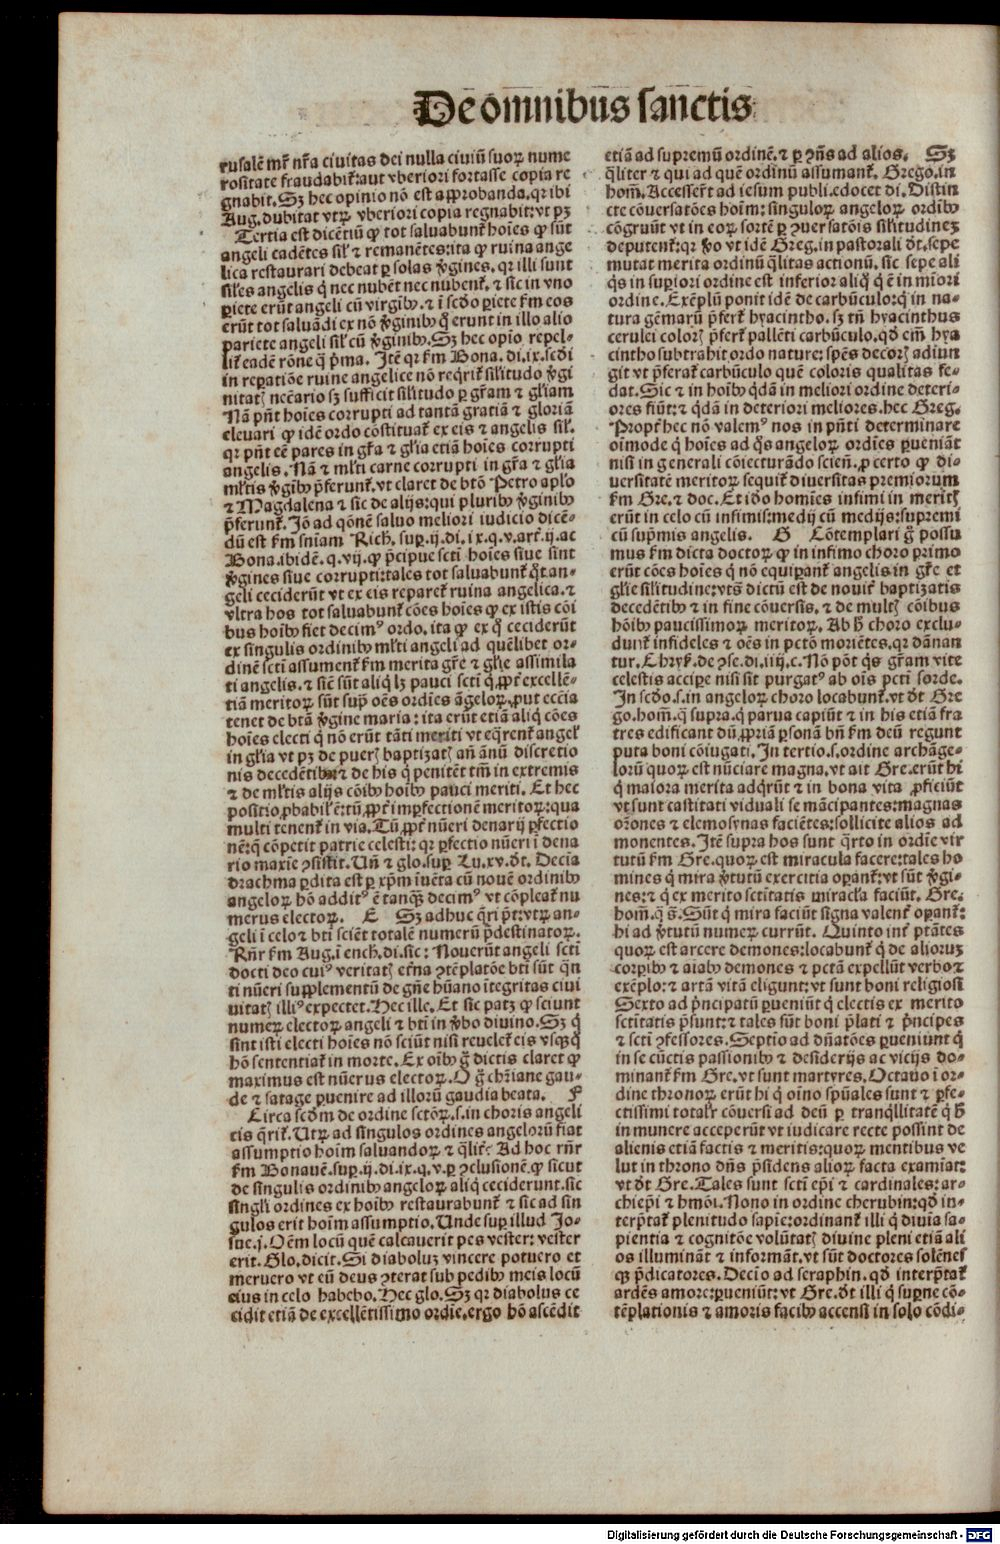 De om̄nibus sanctis
rusalē mr̄ nr̄a ciuitas dei nulla ciuiū suoꝝ nume
rositate fraudabiť:aut vberiori fortasse copia re
gnabit. Sꝫ hec opinio nō est approbanda.qꝛ ibi
Aug.dubitat vtꝝ vberiori copia regnabit:vt pꝫ
Tertia est dicētiū ꝙ tot saluabunť hoīes ꝙ sūt
angeli cadētes siľ ⁊ remanētes:ita ꝙ ruina ange
lica restaurari debeat ꝑ solas ꝟgines. qꝛ illi sunt
siľes angelis q̇ nec nubēt nec nubenť. ⁊ sic in vno
ꝑiete erūt angeli cū virgībꝰ. ⁊ ī scd̄o ꝑiete ẜm eos
erūt tot saluādi ex nō ꝟginibꝰ q̇ erunt in illo alio
pariete angeli siľ cū ꝟginibꝰ. Sꝫ hec opīo repel-
liť eadē rōne q̄ p̄ma. Itē qꝛ ẜm Bona. di.ix.scd̄i
in reꝑatiōe ruine angelice nō req̇riť siľitudo ꝟgi
nitatꝭ necārio sꝫ sufficit siľitudo ꝑ gr̄am ⁊ gľiam
Nā pn̄t hoīes corrupti ad tantā gratiā ⁊ gloriā
eleuari ꝙ idē ordo cōstituať ex eis ⁊ angelis siľ.
qꝛ pn̄t eē pares in gr̄a ⁊ gľia etiā hoīes corrupti
angelis. Nā ⁊ mľti carne corrupti in gr̄a ⁊ gľia
mľtis ꝟgībꝰ p̄ferunť.vt claret de btō Petro apľo
⁊ Magdalena ⁊ sic de alijs:qui pluribꝰ ꝟginibꝰ
p̄ferunť. Iō ad qōnē saluo meliori iudicio dicē-
dū est ẜm sniam Rich. suꝑ.ij.di.ix.q.v.art̄.ij.ac
Bona.ibidē.q.vij.ꝙ p̄cipue scti hoīes siue sint
ꝟgines siue corrupti:tales tot saluabunť q̇t an-
geli ceciderūt vt ex eis repareť ruina angelica.⁊
vltra hos tot saluabunť cōes hoīes ꝙ ex istis cōi
bus hoībꝰ fiet decimꝰ ordo.ita ꝙ ex q̇ ceciderūt
ex singulis ordinibꝰ mľti angeli ad quēlibet or-
dinē scti assumenť ẜm merita gr̄e ⁊ gľie assimila
ti angelis.⁊ sic̄ sūt aliq̇ lꝫ pauci scti q̇ ꝓpt̄ excellē-
tiā meritoꝝ sūt suꝑ oēs ordīes āgeloꝝ.ꝓut ecc̄ia
tenet de btā ꝟgine maria: ita erūt etiā aliq̇ cōes
hoīes electi q̇ nō erūt tāti meriti vt eq̄renť angeľ
in gľia vt pꝫ de puerꝭ baptizatꝭ an̄ ānū discretio
nis decedētibꝰ ⁊ de his q̇ penitēt tm̄ in extremis
⁊ de mľtis alijs cōibꝰ hoībꝰ pauci meriti. Et hec
positio ꝓbabiľ ē:tū ꝓpt̄ imꝑfectionē meritoꝝ:qua
multi tenenť in via. Tū ꝓpt̄ nūeri denarij ꝑfectio
nē:q̄ cōpetit patrie celesti: qꝛ ꝑfectio nūeri ī dena
rio maxīe ꝯsistit. Un̄ ⁊ glo.suꝑ Lu.xv.dt̄. Decīa
drachma ꝑdita est ꝑ xp̄m īuēta cū nouē ordinibꝰ
angeloꝝ hō additꝰ ē tanq̇ꝫ decimꝰ vt cōpleať nu
merus electoꝝ. E Sꝫ adhuc q̄ri pt̄:vtꝝ an-
geli ī celo ⁊ bti sciēt totalē numerū p̄destinatoꝝ.
Rn̄r ẜm Aug.ī ench.di.sic: Nouerūt angeli scti
docti deo cuiꝰ veritatꝭ et̄na ꝯtēplatōe bti sūt q̄n
ti nūeri supplementū de gn̄e hūano ītegritas ciui
uitatꝭ illiꝰ expectet. Hec ille. Et sic patꝫ ꝙ sciunt
numeꝝ electoꝝ angeli ⁊ bti in ꝟbo diuino. Sꝫ q̇
sint isti electi hoīes nō sciūt nisi reueleť eis vsq̇q̇
hō sententiať in morte. Ex oībꝰ g̊ dictis claret ꝙ
maximus est nūerus electoꝝ. O g̊ chr̄iane gau-
de ⁊ satage ꝑuenire ad illorū gaudia beata. F
Circa scd̄m de ordine sctōꝝ.s.in choris angeli
cis q̄riť. Utꝝ ad singulos ordines angelorū fiat
assumptio hoīm saluandoꝝ ⁊ q̄liť: Ad hoc rn̄r
ẜm Bonauē.suꝑ.ij.di.ix.q.v.ꝑ ꝯclusionē.ꝙ sicut
de singulis ordinibꝰ angeloꝝ aliq̇ ceciderunt.sic
singľi ordines ex hoībꝰ restaurabunť ⁊ sic ad sin
gulos erit hoīm assumptio. Unde suꝑ illud Jo-
sue.j. Oēm locū quē calcauerit pes vester: vester
erit. Glo.dicit. Si diaboluꝫ vincere potuero et
meruero vt eū deus ꝯterat sub pedibꝰ meis locū
eius in celo habebo. Hec glo. Sꝫ qꝛ diabolus ce
cidit etiā de excellētissimo ordīe.ergo hō ascēdit
etiā ad supremū ordinē.⁊ ꝑ ꝯn̄s ad alios. Sꝫ
q̄liter ⁊ qui ad quē ordinū assumanť. Grego.in
hom̄. Accesser̄t ad iesum publi.edocet di. Distin
cte cōuersatōes hoīm: singuloꝝ angeloꝝ ordībꝰ
cōgruūt vt in eoꝝ sortē ꝑ ꝯuersatōis siľitudineꝫ
deputenť:qꝛ ꝟo vt idē Greg.in pastorali dt̄.sepe
mutat merita ordinū q̄litas actionū. sic sepe ali
q̇s in suꝑiori ordine est inferior aliq̇ q̇ ē in mīori
ordine. Exēplū ponit idē de carbūculo:q̇ in na-
tura gēmarū p̄ferť hyacintho. sꝫ tn̄ hyacinthus
cerulei colorꝭ p̄ferť pallēti carbūculo.qd̄ em̄ hya
cintho subtrahit ordo nature: spēs decorꝭ adiun
git vt p̄ferať carbūculo quē coloris qualitas fe-
dat. Sic ⁊ in hoībꝰ q̇dā in meliori ordine deteri-
ores fiūt:⁊ q̇dā in deteriori meliores.hec Greg.
Propt̄ hec nō valemꝰ nos in pn̄ti determinare
oīmode q̇ hoīes ad q̇s angeloꝝ ordīes ꝑueniāt
nisi in generali cōiecturādo scien̄.ꝓ certo ꝙ di-
uersitatē meritoꝝ sequiť diuersitas premiorum
ẜm Gre.⁊ doc. Et iō homīes infimi in meritꝭ
erūt in celo cū infimis:medij cū medijs:supremi
cū sup̄mis angelis. G Cōtemplari g̊ possu
mus ẜm dicta doctoꝝ ꝙ in infimo choro primo
erūt cōes hoīes q̇ nō equiꝑanť angelis in gr̄e et
gľie siľitudine:vt s̄ dictū est de nouiť baptizatis
decedētibꝰ ⁊ in fine cōuersis. ⁊ de multꝭ cōibus
hōibꝰ paucissimoꝝ meritoꝝ. Ab h̄ choro exclu-
dunť infideles ⁊ oēs in pctō moriētes.qꝛ dānan
tur. Chryẜ.de ꝯse.di.iiij.c. Nō pōt q̇s gr̄am vite
celestis acciꝑe nisi sit purgatꝰ ab oīs pcti sorde.
In scd̄o.s.in angeloꝝ choro locabunť.vt dt̄ Gre
go.hom̄.q̄ supra.q̇ parua capiūt ⁊ in his etiā fra
tres edificant dū ꝓpriā ꝑsonā bn̄ ẜm deū regunt
puta boni cōiugati. In tertio.s.ordine archāge-
lorū quoꝝ est nūciare magna.vt ait Gre.erūt hi
q̇ maiora merita adq̇rūt ⁊ in bona vita ꝓficiūt
vt sunt castitati viduali se mācipantes:magnas
or̄ones ⁊ elemosynas faciētes:sollicite alios ad
monentes. Itē supra hos sunt q̇rto in ordīe vir
tutū ẜm Gre.quoꝝ est miracula facere:tales ho
mines q̇ mira ꝟtutū exercitia oꝑanť:vt sūt ꝟgi-
nes:⁊ q̇ ex merito sctītatis miracľa faciūt. Gre.
hom̄.q̄ s̄. Sūt q̇ mira faciūt signa valenť oꝑanť:
hi ad ꝟtutū numeꝝ currūt. Quinto int̄ ptātes
quoꝝ est arcere demones:locabunť q̇ de alioruꝫ
corꝑibꝰ ⁊ aīabꝰ demones ⁊ pctā expellūt verbo ⁊
exēplo:⁊ artā vitā eligunt:vt sunt boni religiosi
Sexto ad p̄ncipatū ꝑueniūt q̇ electis ex merito
sctītatis p̄sunt:⁊ tales sūt boni p̄lati ⁊ p̄ncipes
⁊ scti ꝯfessores. Septīo ad dn̄atōes ꝑueniunt q̇
in se cūctis passionibꝰ ⁊ desiderijs ac vicijs do-
minanť ẜm Gre.vt sunt martyres. Octauo ī or-
dine thronoꝝ erūt hi q̇ oīno spūales sunt ⁊ ꝑfe-
ctissimi totaľr cōuersi ad deū ꝑ tranq̇llitatē q̇ h̄
in munere acceperūt vt iudicare recte possint de
alienis etiā factis ⁊ meritis:quoꝝ mentibus ve
lut in throno dn̄s p̄sidens alioꝝ facta examīat:
vt dt̄ Gre. Tales sunt scti ep̄i ⁊ cardinales: ar-
chiep̄i ⁊ hmōi. Nono in ordine cherubin:qd̄ in-
terp̄tať plenitudo sapīe:ordinanť illi q̇ diuīa sa-
pientia ⁊ cognitōe volūtatꝭ diuine pleni etiā ali
os illumināt ⁊ informāt.vt sūt doctores solēnes
qꝫ p̄dicatores. Decīo ad seraphin.qd̄ interp̄tať
ardēs amore:ꝑueniūt:vt Gre.dt̄ illi q̇ suꝑne cō-
tēplationis ⁊ amoris facibꝰ accensi in solo cōdi-
Digitalisierung gefördert durch die Deutsche Forschungsgemeinschaft - DFG